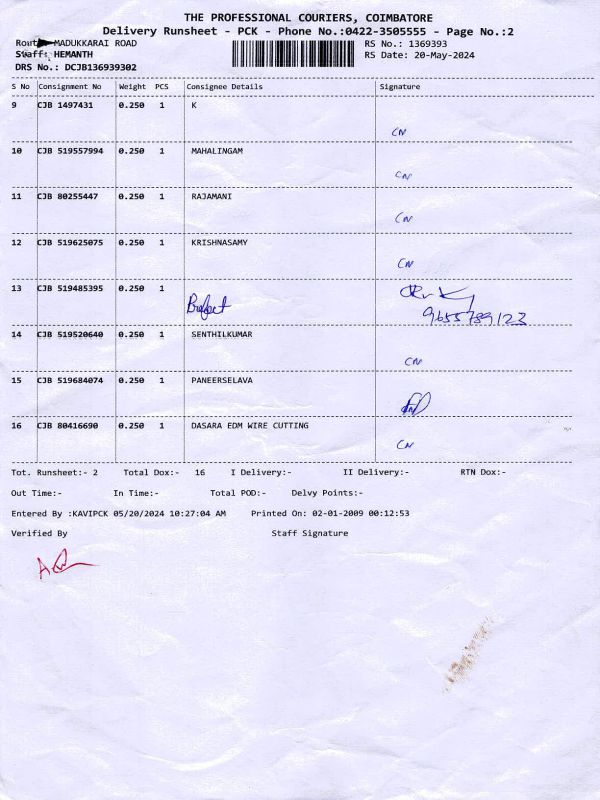 THE PROFESSIONAL COURIERS, COIMBATORE
Delivery Runsheet - PCK - Phone No.:0422-3505555 - Page No.:2
MADUKKARAI ROAD RS No.: 1369393
Staff: HEMANTH RS Date: 20-May-2024
DRS No.: DCJB136939302
S No Consignment No Weight PCS Consignee Details Signature
9 CJB 1497431 0.250 1 K
CN
10 CJB 519557994 0.250 1 MAHALINGAM
CN
11 CJB 80255447 0.250 1 RAJAMANI
CN
12 CJB 519625075 0.250 1 KRISHNASAMY
CN
13 CJB 519485395 0.250 1
9655789123
14 CJB 519520640 0.250 1 SENTHILKUMAR
CN
15 CJB 519684074 0.250 1 PANEERSELAVA
16 CJB 80416690 0.250 1 DASARA EDM WIRE CUTTING
CN
Tot. Runsheet:- 2 Total Dox:- 16 I Delivery:- II Delivery:- RTN Dox:-
Out Time:- In Time:- Total POD:- Delvy Points:-
Entered By :KAVIPCK 05/20/2024 10:27:04 AM Printed On: 02-01-2009 00:12:53
Verified By Staff Signature